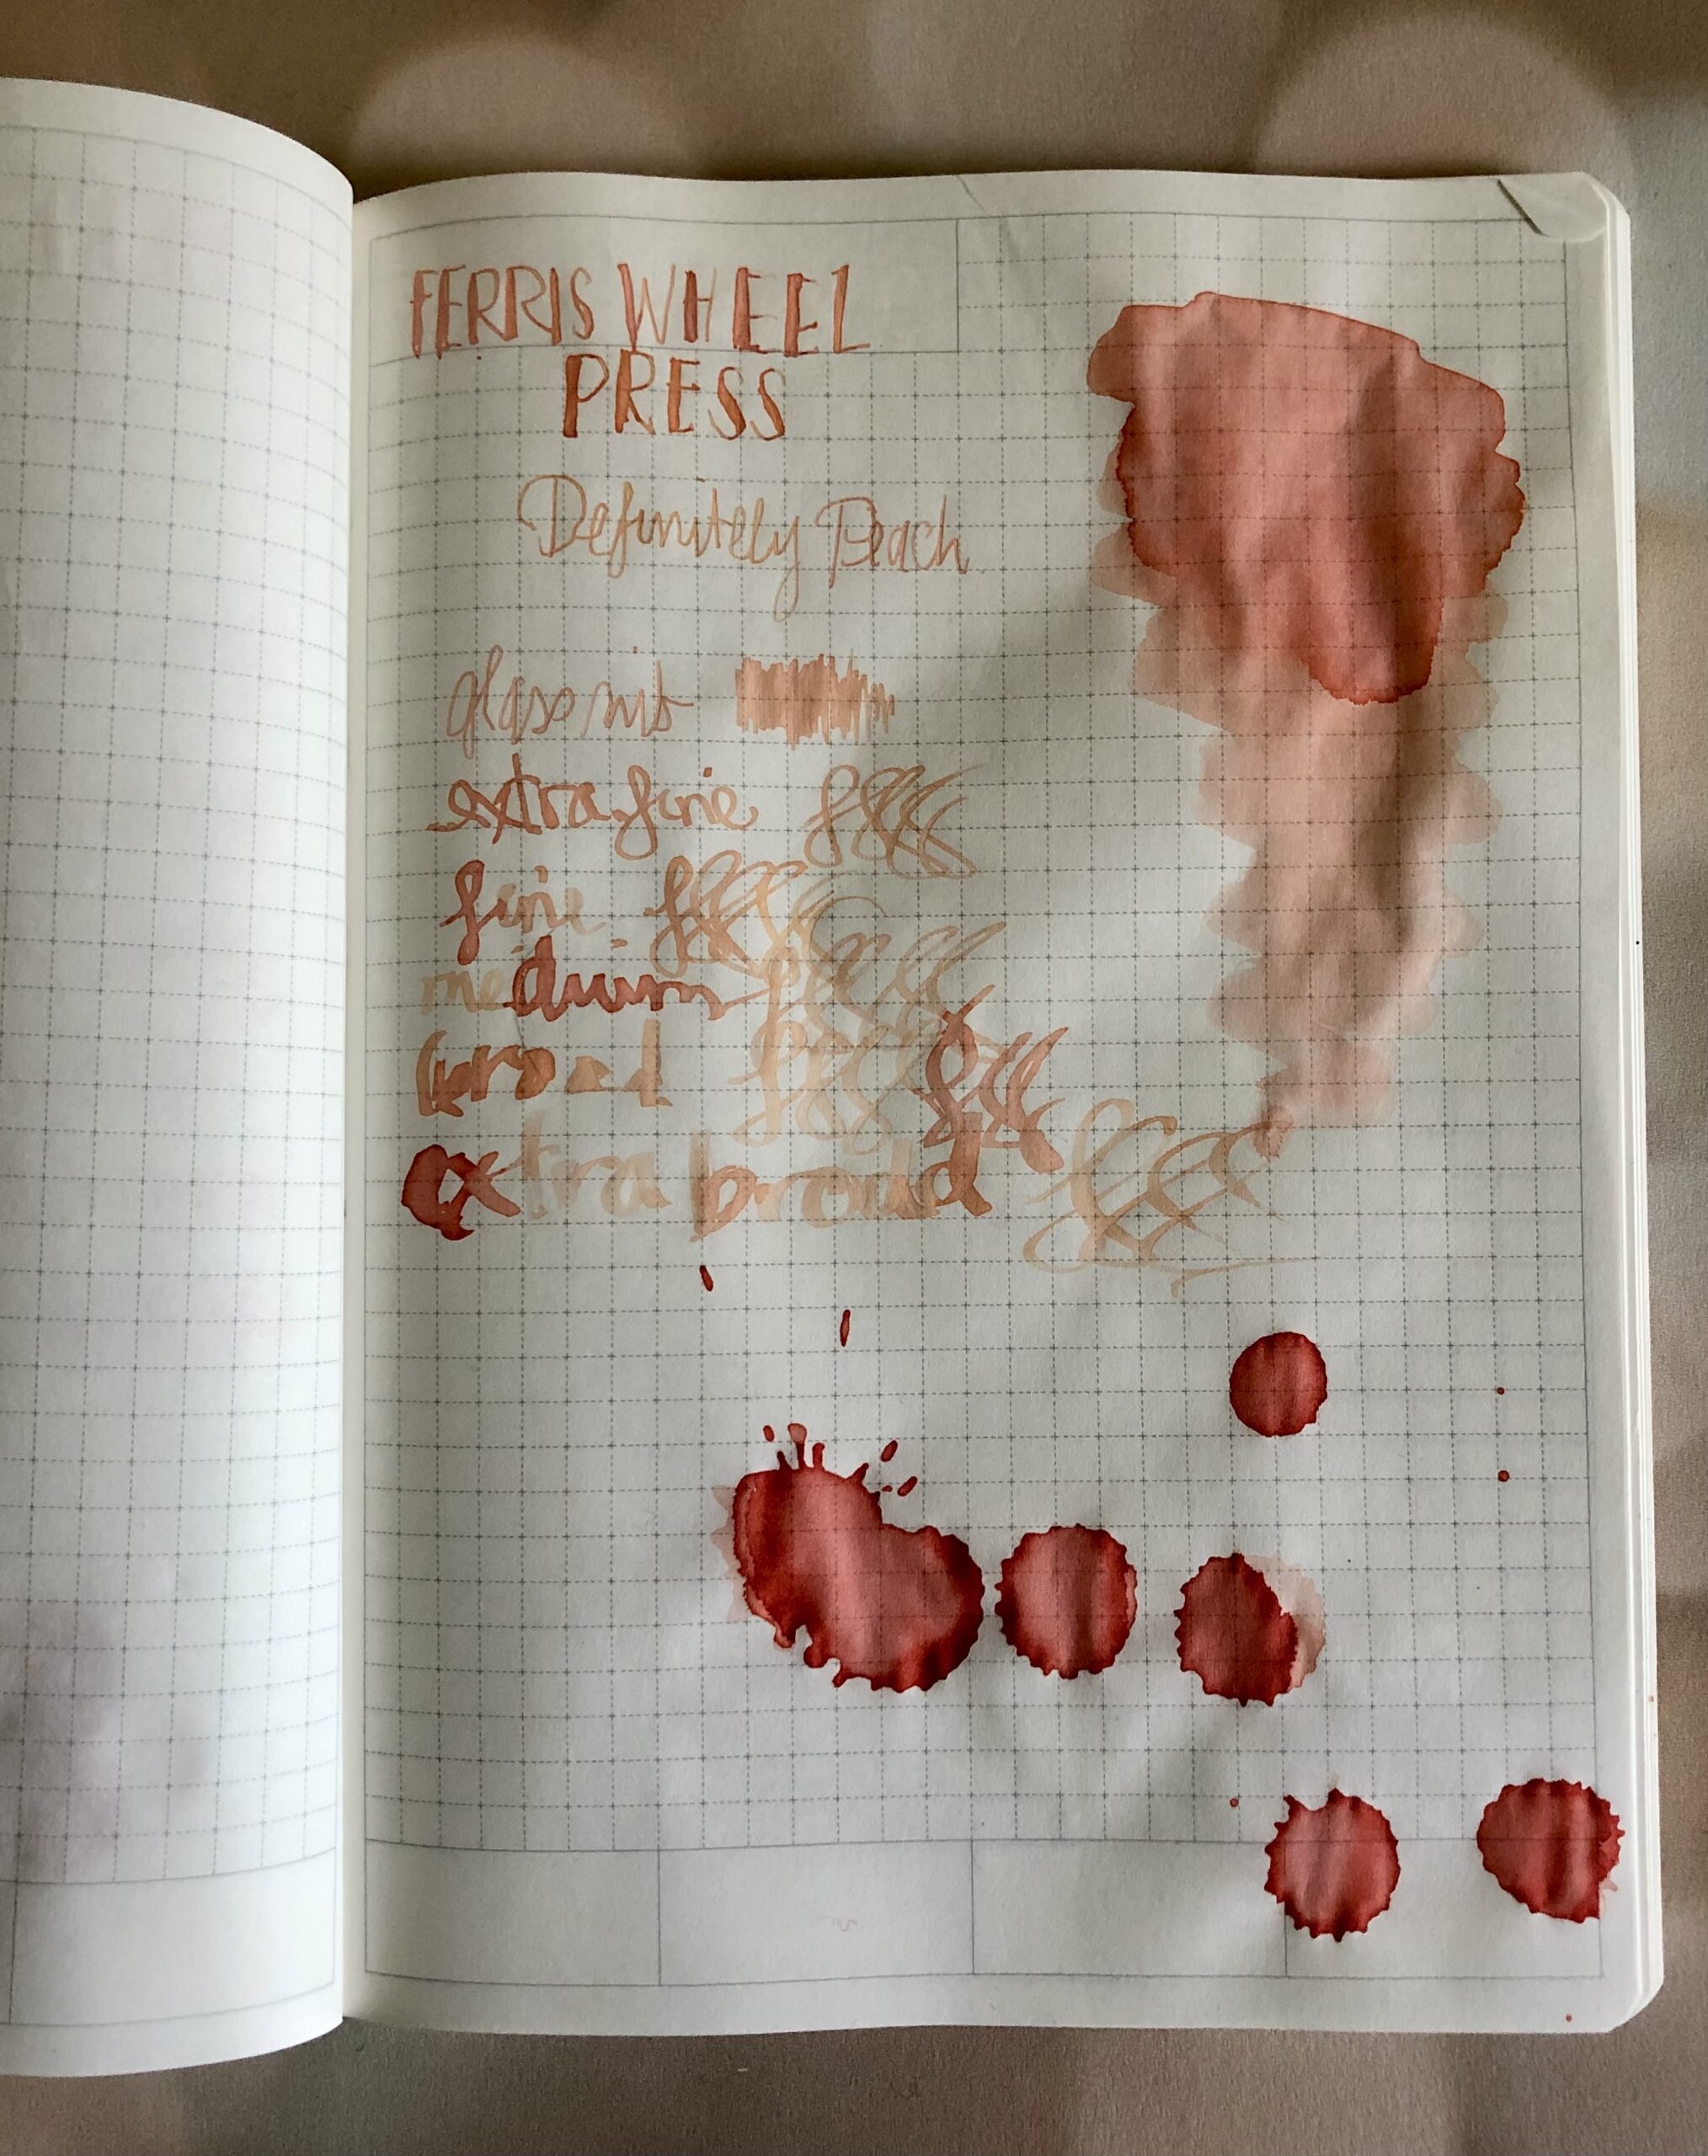 FERRIS WHEEL
PRESS
Definitely Peach
glass nib
extra fine
fine
medium
broad
extra broad